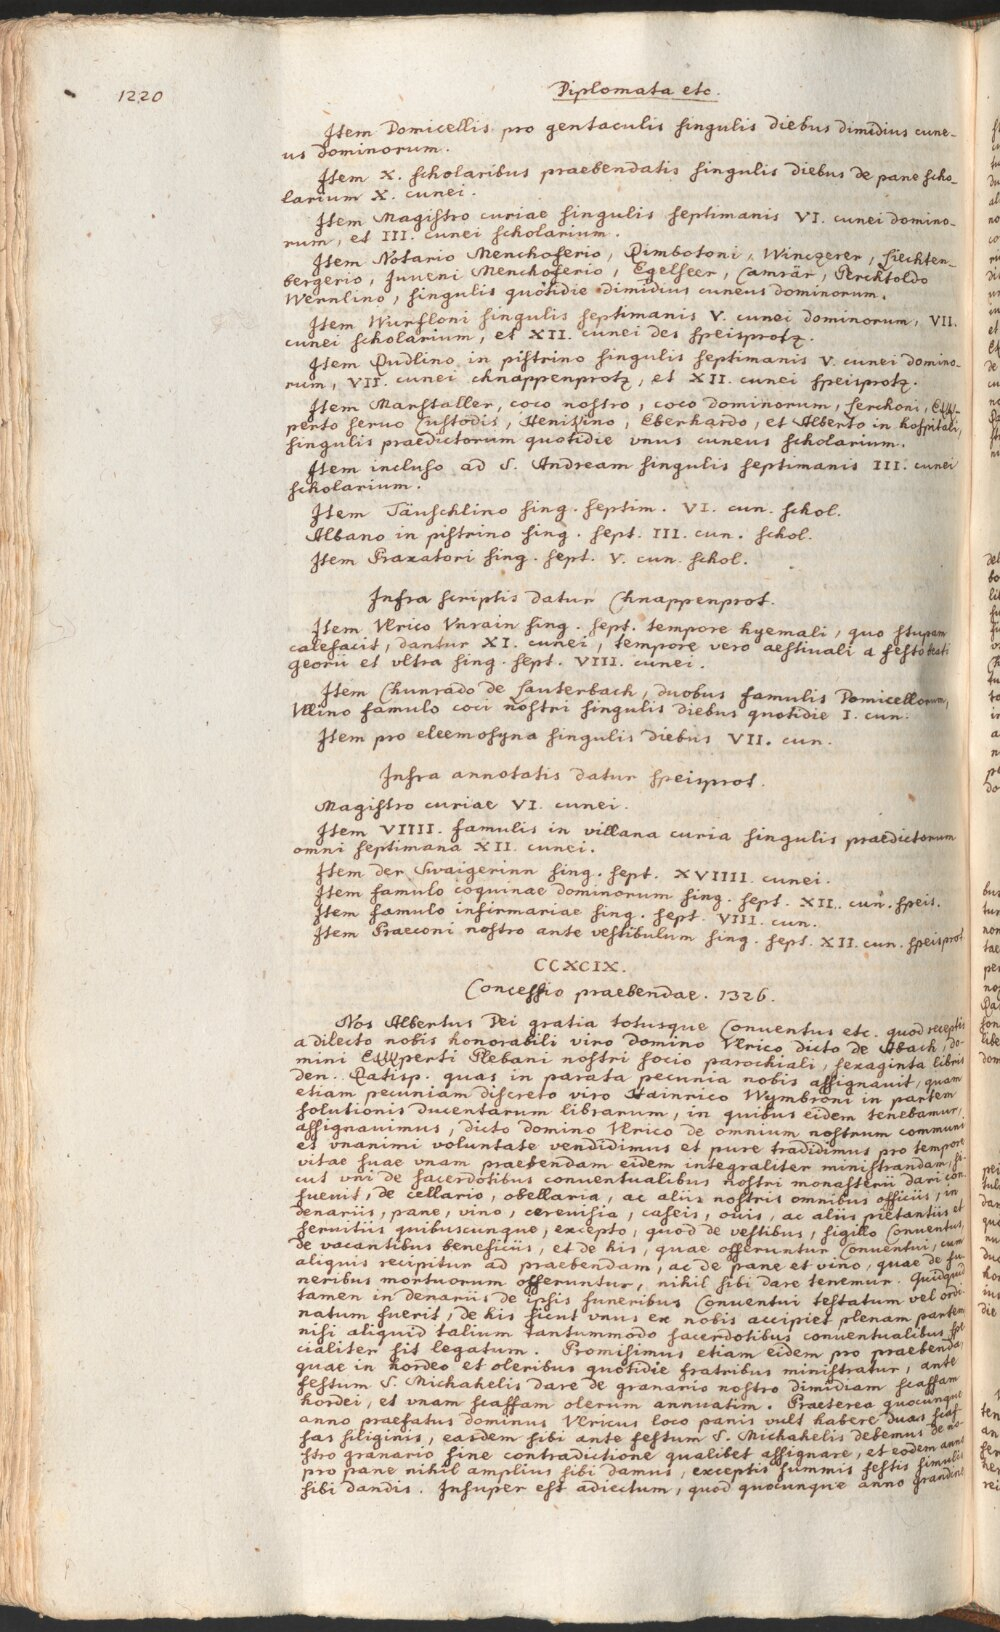 1220
Diplomata etc.
Item Domicellis pro gentaculis singulis diebus dimidius cune-
us dominorum.
Item X. scholaribus praebendatis singulis diebus de pane scho-
larium X. cunei.
Item Magistro curiae singulis septimanis VI. cunei domino-
rum, et III. cunei scholarium.
Item Notario Menchoferio, Pimbotoni, Winczerer, Liechten-
bergerio, Juveni Menchoferio, Egelseer, Camrär, Perchtoldo
Wernlino, singulis quotidie dimidius cuneus dominorum.
Item Wurfloni singulis septimanis V. cunei dominorum, VII.
cunei scholarium, et XII. cunei des speisprotz.
Item Rudlino in pistrino singulis septimanis V. cunei domino-
rum, VII. cunei chnappenprotz, et XII. cunei speisprotz.
Item Marstaller, coco nostro, coco dominorum, Lerchoni,
perto seruo Custodis, Henizino, Eberhardo, et Alberto in hospitali,
singulis praedictorum quotidie vnus cuneus scholarium.
Item incluso ad S. Andream singulis septimanis III. cunei
scholarium.
Item Täuschlino sing. septim. VI. cun. schol.
Albano in pistrino sing. sept. III. cun. schol.
Item Praxatori sing. sept. V. cun. schol.
Infra scriptis datur Chnappenprot.
Item Vlrico Vnrain sing. sept. tempore hyemali, quo stupam
calefacit, dantur XI. cunei, tempore vero aestiuali a festo beati
georii et vltra sing. sept. VIII. cunei.
Item Chunrado de Lauterbach, duobus famulis Domicellorum,
Vllino famulo coci nostri singulis diebus quotidie I. cun.
Item pro eleemosyna singulis diebus VII. cun.
Infra annotatis datur speisprot.
Magistro curiae VI. cunei.
Item VIIII. famulis in villana curia singulis praedictorum
omni septimana XII. cunei.
Item der Swaigerinn sing. sept. XVIIII. cunei.
Item famulo coquinae dominorum sing. sept. XII. cun. speis.
Item famulo infirmariae sing. sept. VIII. cun.
Item Praeconi nostro ante vestibulum sing. sept. XII. cun. speisprot
CCXCIX.
Concessio praebendae. 1326.
Nos Albertus Dei gratia totusque Conuentus etc. quod receptis
a dilecto nobis honorabili viro domino Vlrico dicto de Abach, do-
mini Plebani nostri socio parochiali, sexaginta libris
den. Ratisp. quas in parata pecunia nobis assignauit, quam
etiam pecuniam discreto viro Hainrico Wymbroni in partem
solutionis ducentarum librarum, in quibus eidem tenebamur,
assignauimus, dicto domino Vlrico de omnium nostrum communi
et vnanimi voluntate vendidimus et pure tradidimus pro tempore
vitae suae vnam praebendam eidem integraliter ministrandam, si-
cut vni de sacerdotibus conuentualibus nostri monasterii dari con-
sueuit, de cellario, obellaria, ac aliis nostris omnibus officiis, in
denariis, pane, vino, cereuisia, caseis, ouis, ac aliis pietantiis et
seruitiis quibuscunque, excepto, quod de vestibus, sigillo Conuentus,
de vacantibus beneficiis, et de his, quae offeruntur Conuentui, cum
aliquis recipitur ad praebendam, ac de pane et vino, quae de fu-
neribus mortuorum offeruntur, nihil sibi dare tenemur. Quidquid
tamen in denariis de ipsis funeribus Conuentui testatum vel ordi-
natum fuerit, de his sicut vnus ex nobis accipiet plenam partem
nisi aliquid talium tantummodo sacerdotibus conuentualibus spe-
cialiter sit legatum. Promisimus etiam eidem pro praebenda,
quae in hordeo et oleribus quotidie fratribus ministratur, ante
festum S. Michahelis dare de granario nostro dimidiam scaffam
hordei, et vnam scaffam olerum annuatim. Praeterea quocunque
anno praefatus dominus Vlricus loco panis vult habere duas scaf-
fas siliginis, easdem sibi ante festum S. Michahelis debemus de no-
stro granario sine contradictione qualibet assignare, et eodem anno
pro pane nihil amplius sibi damus, exceptis summis festis simulis
sibi dandis. Insuper est adiectum, quod quocunque anno grandine